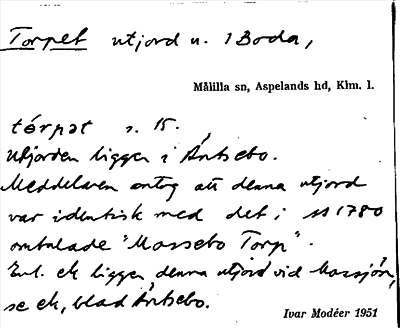 Torpet utjord u. 1 Boda,
Målilla sn, Aspelands hd, Klm. l.
tórpət s. 15.
Utjorden ligger i Äntsebo.
Meddelaren antog att denna utjord
var identisk med det i 1780
omtalade "Mossebo Torp".
Enl. ek ligger denna utjord vid Mossjön,
se ek, blad Äntsebo.
Ivar Modéer 1951